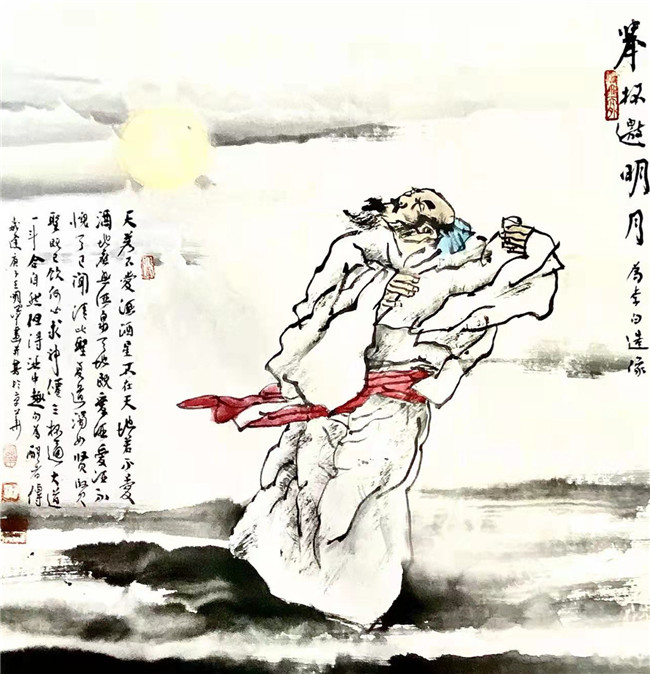 舉杯邀明月
為李白造像
天若不爱酒酒星不在天地若不爱
酒地应无酒泉天地既爱酒爱酒不
愧天已闻清比聖复道浊如贤贤
聖既已饮何必求神仙三杯通大道
一斗合自然但得酒中趣勿为醒者傳
庚子